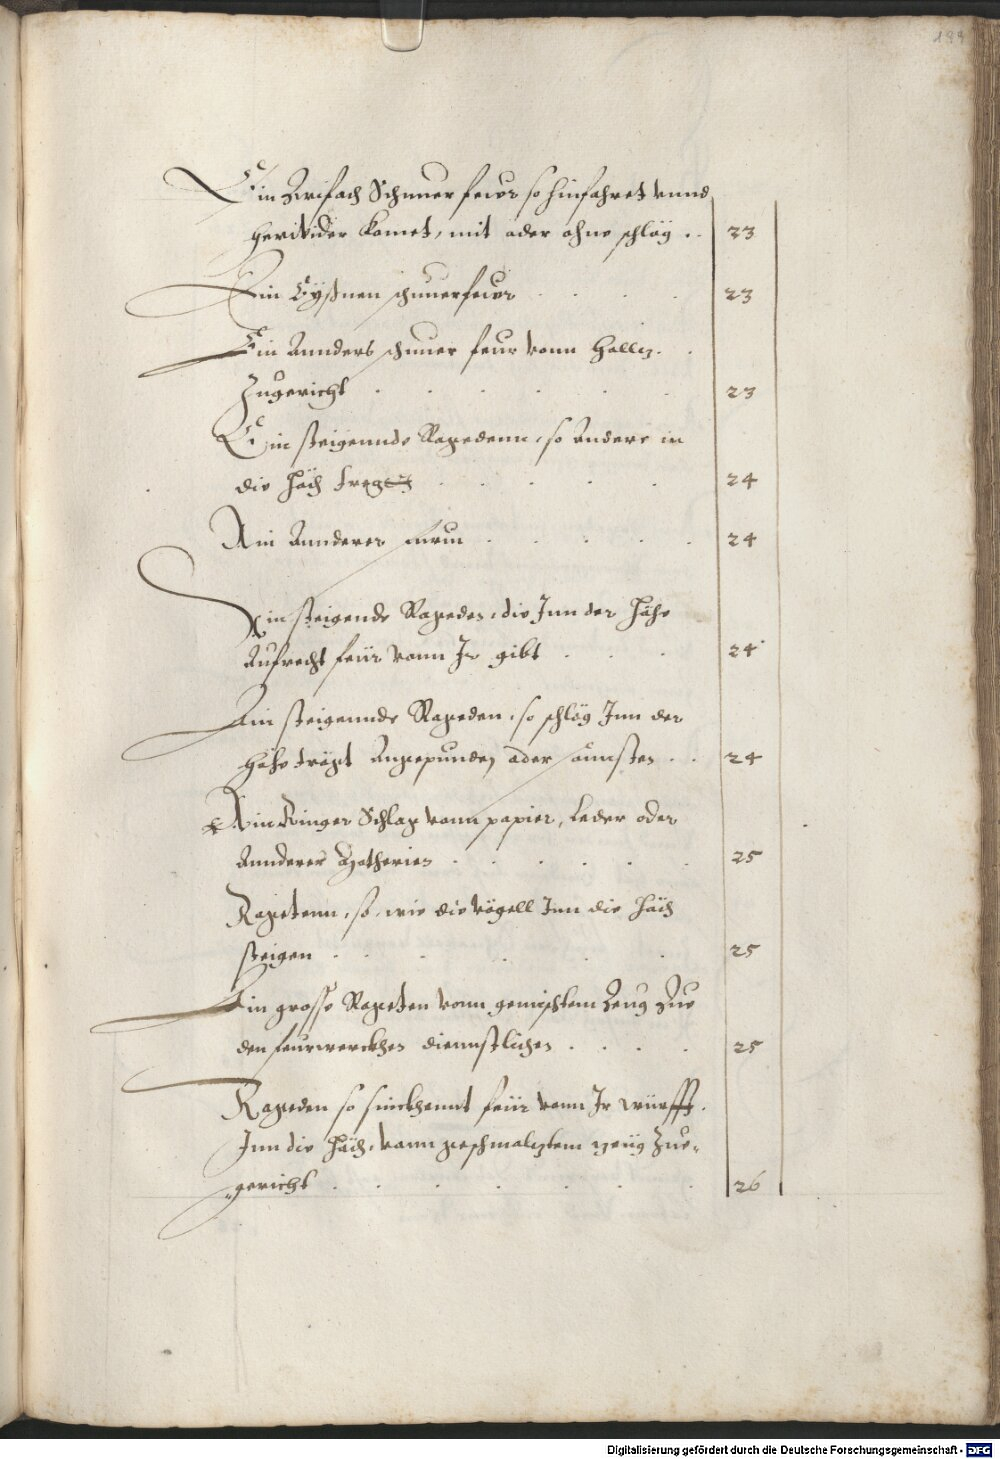 199
Ein Zwifach Schnuer feuer so hinfahret vnnd
herwider komet, mit oder ohne schläg . 23
Ein Eyßnen schnuerfeuer 23
Ein Annders schnuer feur vonn holtz
Zugericht 23
Ein steigennde Rageden, so andere in
die höch tregt 24
Ain Annderer furm 24
Ain steigende Rageden, die Inn der höhe
Aufrecht feür vonn Ir gibt 24
Ain steigennde Rageden, so schläg Inn der
höhe tregt Angepunden oder sünsten 24
Ain Ringer Schlag vonn papier, Leder oder
Annderer Matherien 25
Ragetenn, so wie die vögell Inn die höch
steigen 25
Ein grosse Rageten vonn gemischtem Zeug Zue
den feurwerckhen diennstlichen 25
Rageden so sinckhennt feür vonn Ir würfft
Inn die höch, vonn geschmaltztem zeüg Zue-
gericht 26
Digitalisierung gefördert durch die Deutsche Forschungsgemeinschaft - DFG